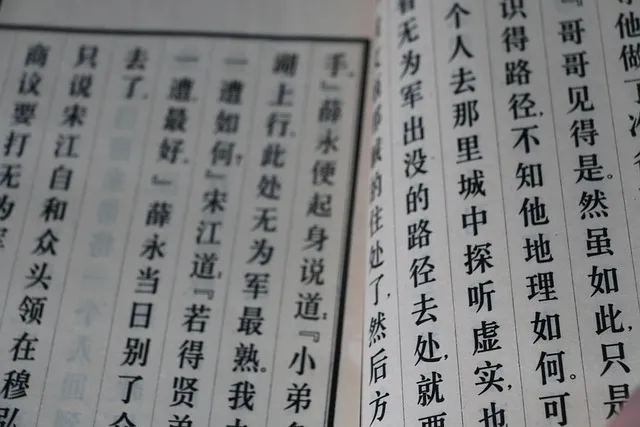 尔他做
『哥哥见得是。然虽如此,只是
识得路径,不知他地理如何。可
个人去那里城中探听虚实,也
看无为军出没的路径去处,就要
的住处了,然后方
手。』薛永便起身说道:『小弟多
湖上行。此处无为军最熟。我去
一遭如何?』宋江道:『若得贤弟
一遭最好。』薛永当日别了众
去了。
只说宋江自和众头领在穆弘
商议要打无为军